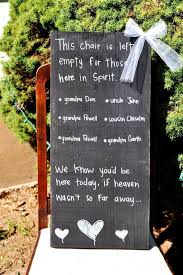 This chair is left
empty for those
here in Spirit.
• grandpa Dan • uncle John
• grandpa Powell • cousin Chisholm
• grandma Powell • grandpa Garth
We know you'd be
here today, if heaven
wasn't so far away...